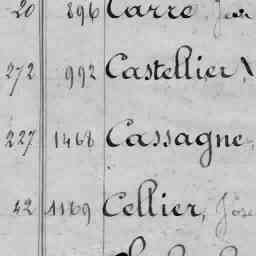 20 896 Carre
272 992 Castellier
227 1468 Cassagne,
42 1169 Cellier,